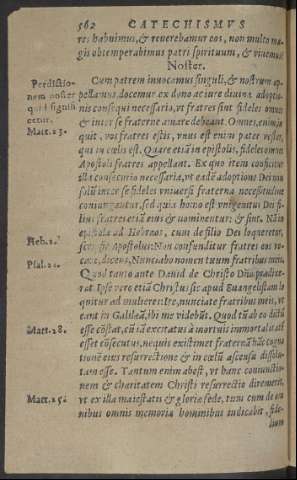 562 CATECHISMVS
res habuimus, & reuerebamur eos, non multo ma
gis obtemperabimus patri spirituum, & viuemus?
Noster.
Cum patrem inuocamus singuli, & nostrum ap
pellamus, docemur ex dono ac iure diuinæ adoptio
nis consequi necessario, vt fratres sint fideles omnes
& inter se fraterne amare debeant. Omnes, enim, in
quit, vos fratres estis, vnus est enim pater vester,
qui in cœlis est. Quare etiā in epistolis, fideles omnes
Apostoli fratres appellant. Ex quo item conficitur
illa consecutio necessaria, vt eadē adoptione Dei nō
solū inter se fideles vniuersi fraterna necessitudine
coniungantur, sed quia homo est vnigenitus Dei fi-
lius: fratres etiā eius & nominentur, & sint. Nā in
epistola ad Hebræos, cum de filio Dei loqueretur,
scripsit Apostolus: Non confunditur fratres eos vo-
care, dicens, Nunciabo nomen tuum fratribus meis.
Quod tanto ante Dauid de Christo Dñō prædixe-
rat. Ipse vero etiā Christus sic apud Euangelistam lo
quitur ad mulieres: Ite, nunciate fratribus meis, vt
eant in Galilæā, ibi me videbūt. Quod tū ab eo dictū
esse cōstat, cū iā excitatus à mortuis immortalitatē
esset cōsecutus, nequis existimet fraternā hāc cogna
tionē eius resurrectione & in cœlū ascensu dissolu-
tam esse. Tantum enim abest, vt hanc coniunctio-
nem & charitatem Christi resurrectio diremerit,
vt ex illa maiestatis & gloriæ sede, tum cum de om
nibus omnis memoriæ hominibus iudicabit, fide-
lium
Perdictio-
nem noster
quid signifi
cetur.
Matt. 23.
Heb. 2.
Psal. 21.
Matt. 28.
Matt. 25.